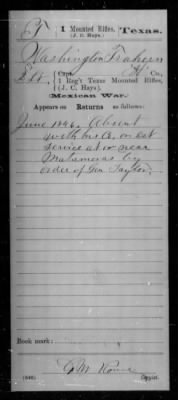 T | 1 Mounted Rifles, (J. C. Hays.) | Texas.
Washington Trahern
Lt, Capt. H Co.,
1 Reg't Texas Mounted Rifles,
(J. C. Hays).
Mexican War.
Appears on Returns as follows:
June 1846. Absent
with Co. on det
service at or near
Matamoras by
order of Gen Taylor.
Book mark:
(646) Copyist.